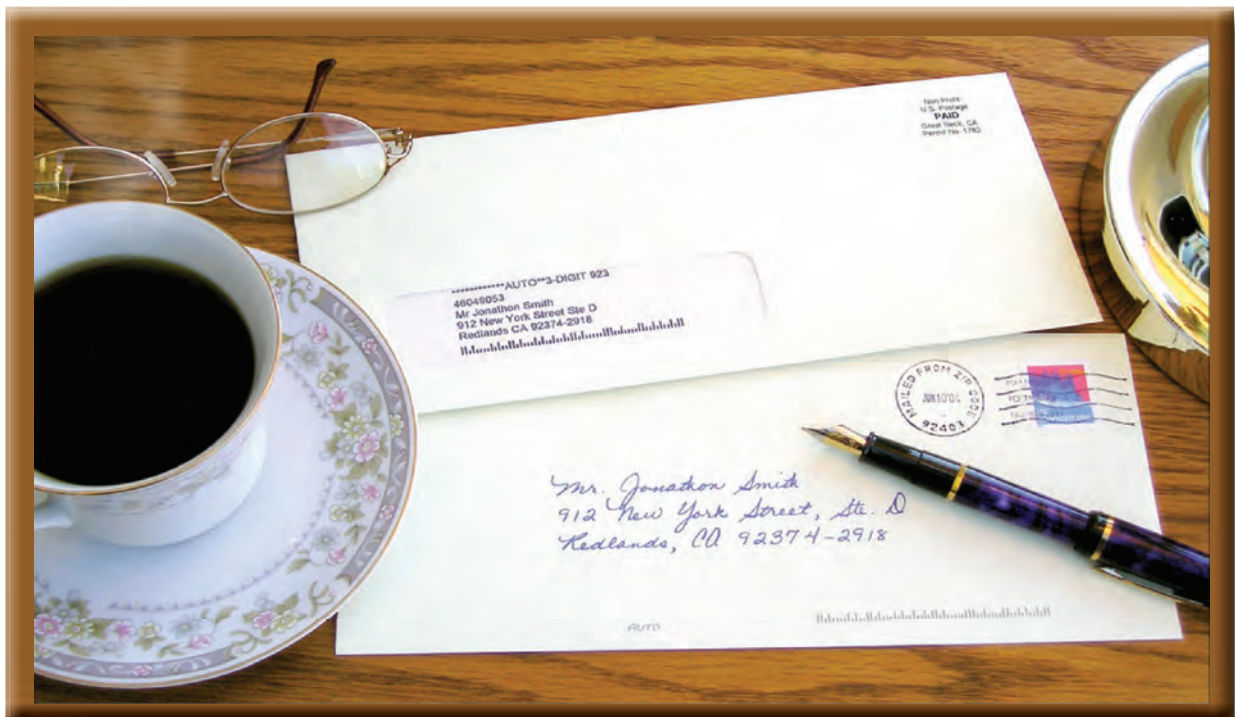 Non Profit
U.S. Postage
PAID
Great Neck, CA
Permit No. 1762
************AUTO**3-DIGIT 923
46049053
Mr Jonathon Smith
912 New York Street Ste D
Redlands CA 92374-2918
MAILED FROM ZIP CODE
JUN 10 04
92403
Mr. Jonathon Smith
912 New York Street, Ste. D
Redlands, CA 92374-2918
AUTO